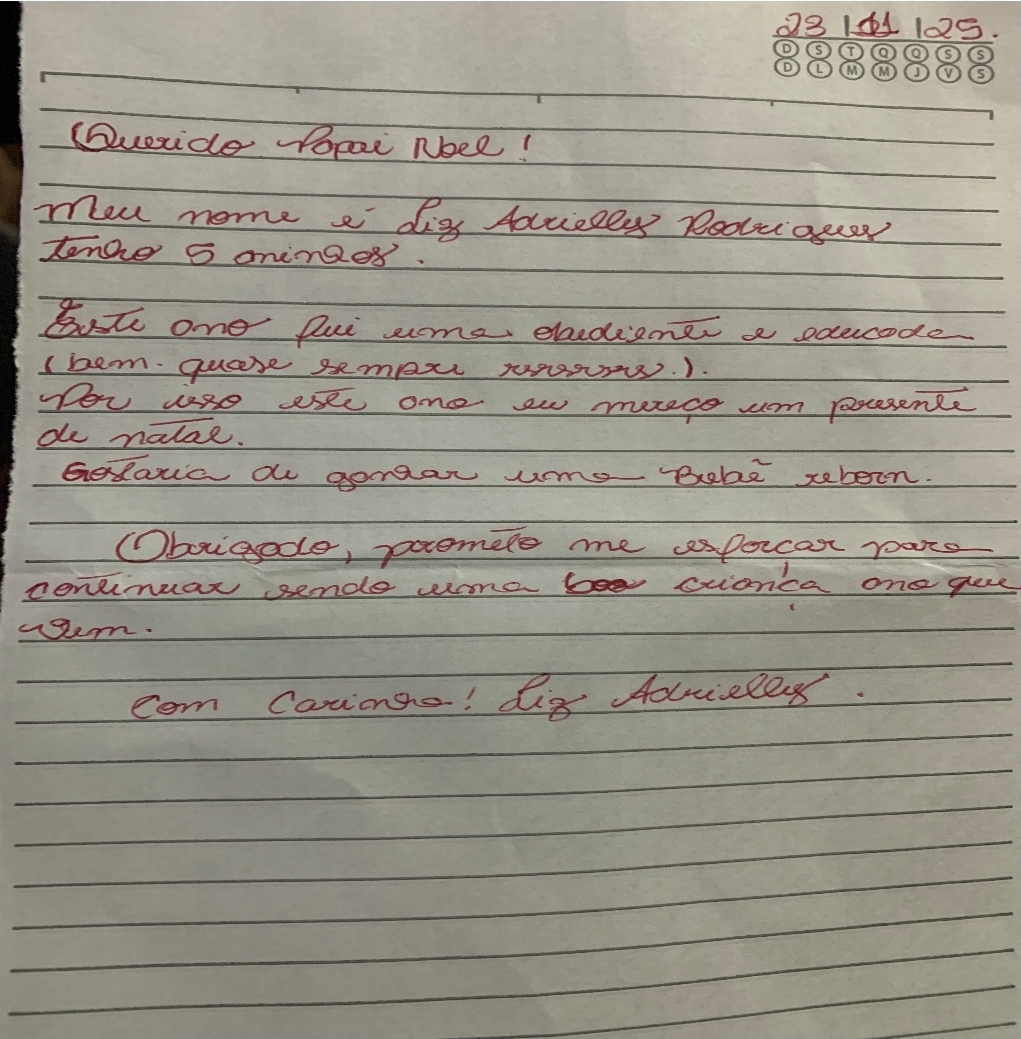 23 | 11 | 25.
D S T Q Q S S
D L M M J V S
Querido Papai Noel!
Meu nome é Liz Adriellys Rodrigues
tenho 5 aninhos.
Este ano fui uma obediente e educada
(bem. quase sempre rsrsrsrs.).
Por isso este ano eu mereço um presente
de natal.
Gostaria de ganhar uma Bebê reborn.
Obrigado, prometo me esforçar para
continuar sendo uma boa criança ano que
vem.
Com Carinho! Liz Adriellys.